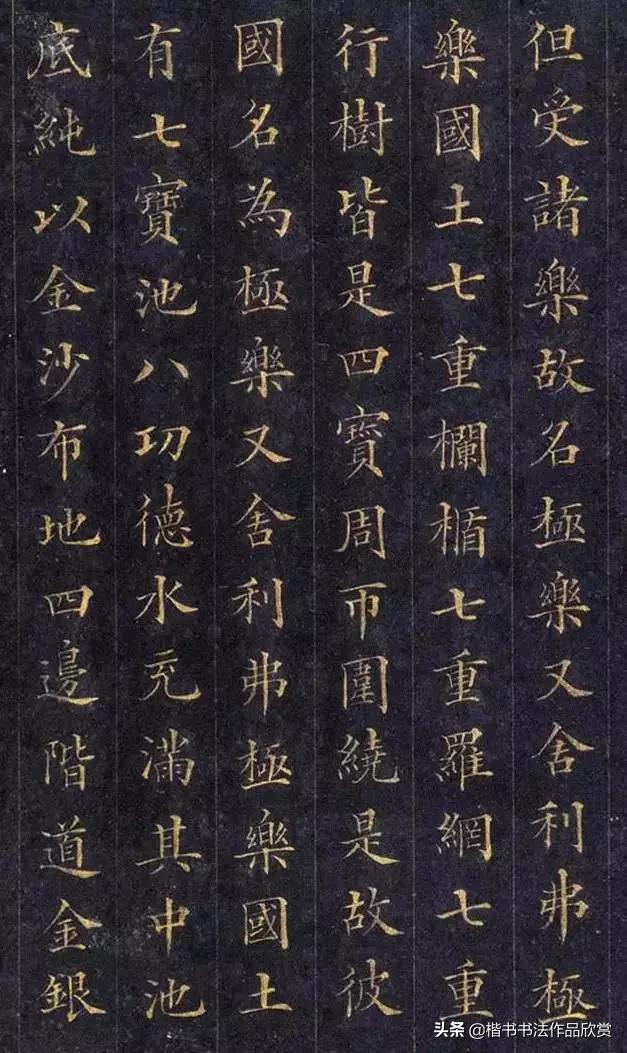 但受諸樂故名極樂又舍利弗極
樂國土七重欄楯七重羅網七重
行樹皆是四寶周帀圍繞是故彼
國名為極樂又舍利弗極樂國土
有七寶池八功德水充滿其中池
底純以金沙布地四邊階道金銀
头条 @楷书书法作品欣赏